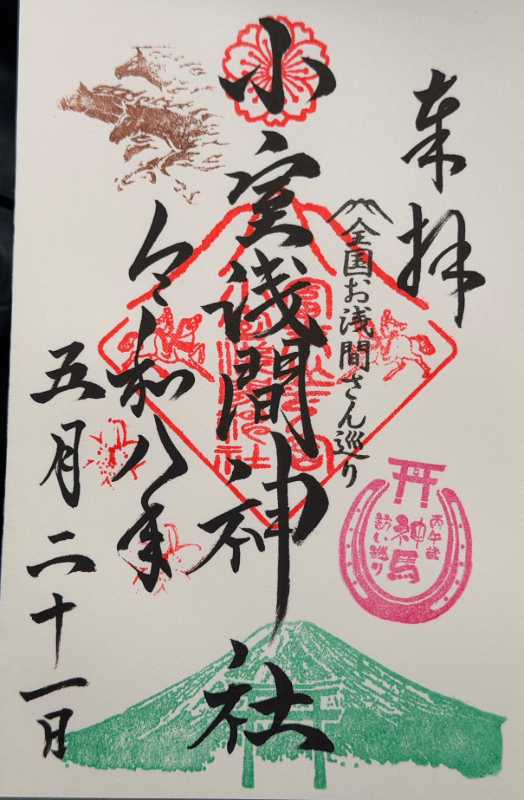 奉拝
全国お浅間さん巡り
小室浅間神社
令和八年
五月二十一日
丙午歳
神馬
訪い巡り